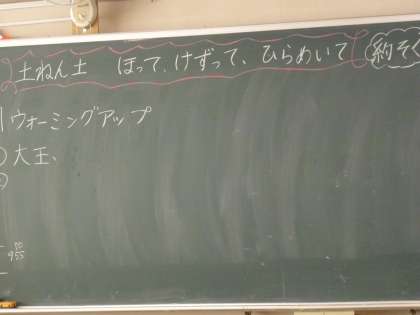 土ねん土 ほって、けずって、ひらめいて 約そく
ウォーミングアップ
大王、